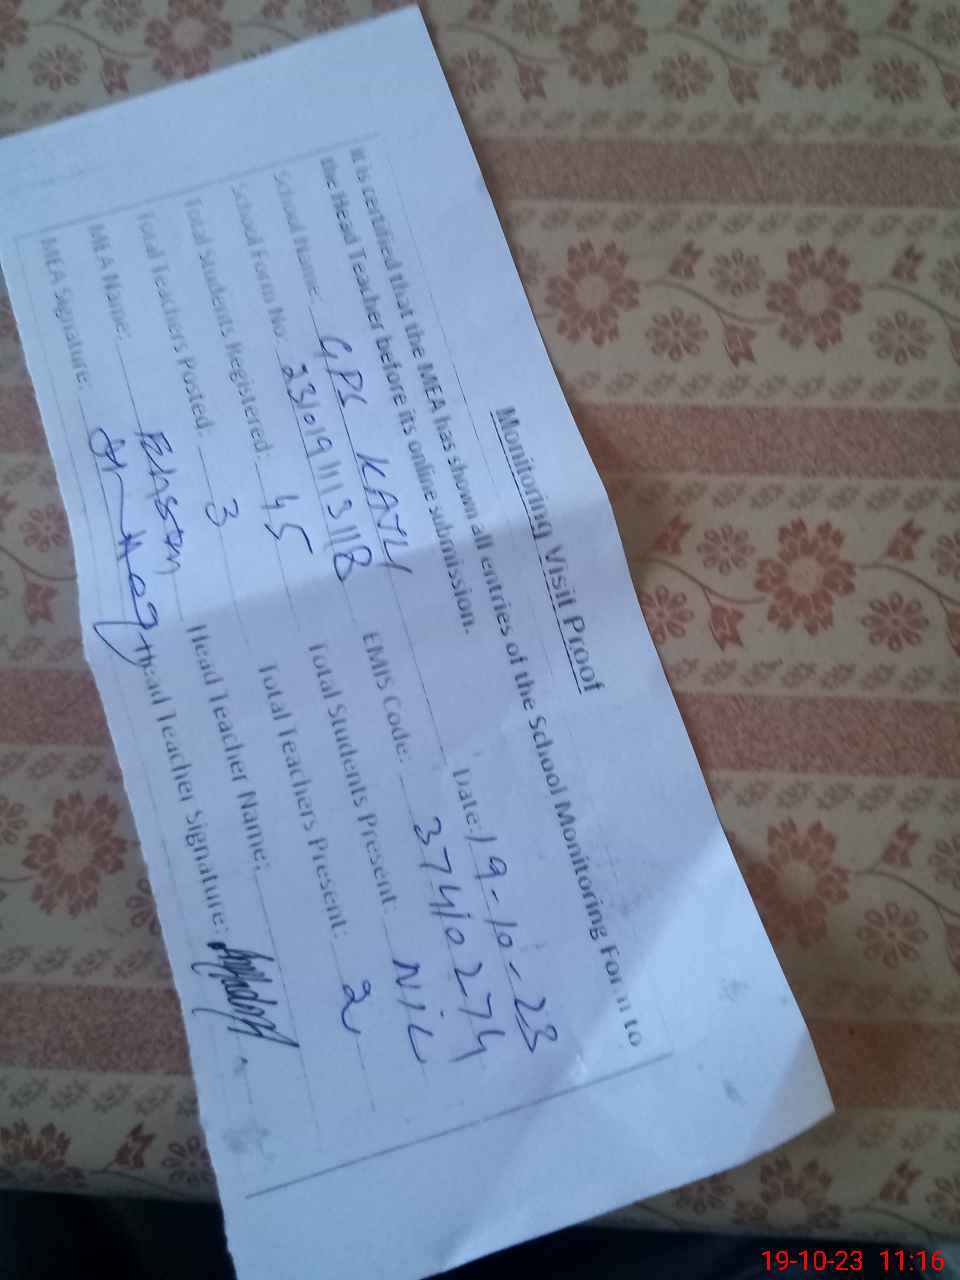 Monitoring Visit Proof
It is certified that the MEA has shown all entries of the School Monitoring Form to
the Head Teacher before its online submission.
Date: 19-10-23
School Name: GPS
EMIS Code: 37410274
School Form No:
Total Students Registered: 45 Total Students Present: NIL
Total Teachers Posted: 3 Total Teachers Present: 2
MEA Name: Head Teacher Name:
MEA Signature: Head Teacher Signature:
19-10-23 11:16